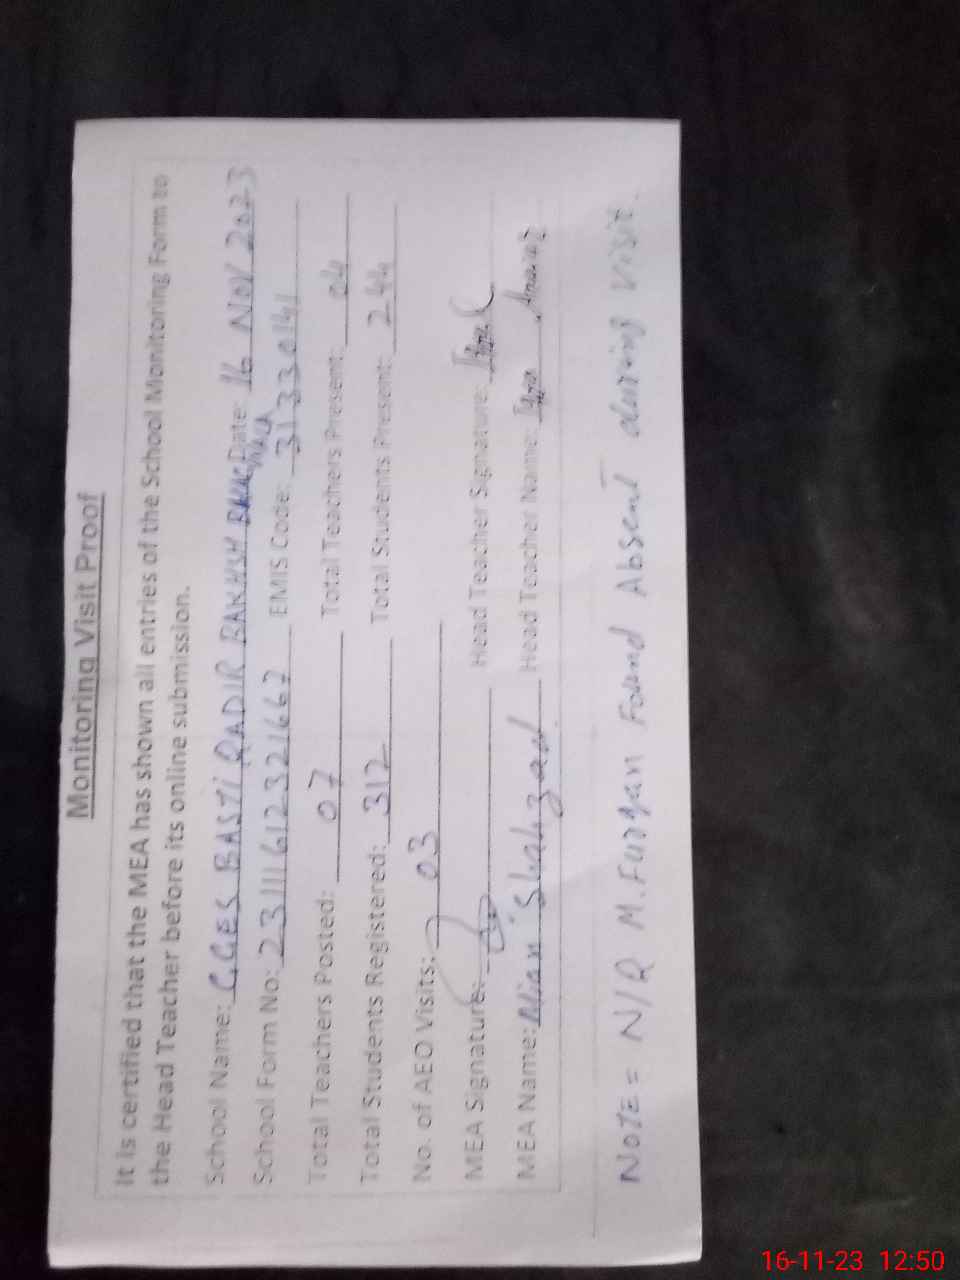 Monitoring Visit Proof
It is certified that the MEA has shown all entries of the School Monitoring Form to
the Head Teacher before its online submission.
School Name: GGES BASTI QADIR BAKHSH Date: 16 NOV 2023
School Form No: 231116123321667 EMIS Code: 31330141
Total Teachers Posted: 07 Total Teachers Present: 04
Total Students Registered: 312 Total Students Present: 244
No. of AEO Visits: 03
MEA Signature: Head Teacher Signature:
MEA Name: Mian Shahzad Head Teacher Name:
NOTE = N/Q M.Furqan Found Absent during visit.
16-11-23 12:50